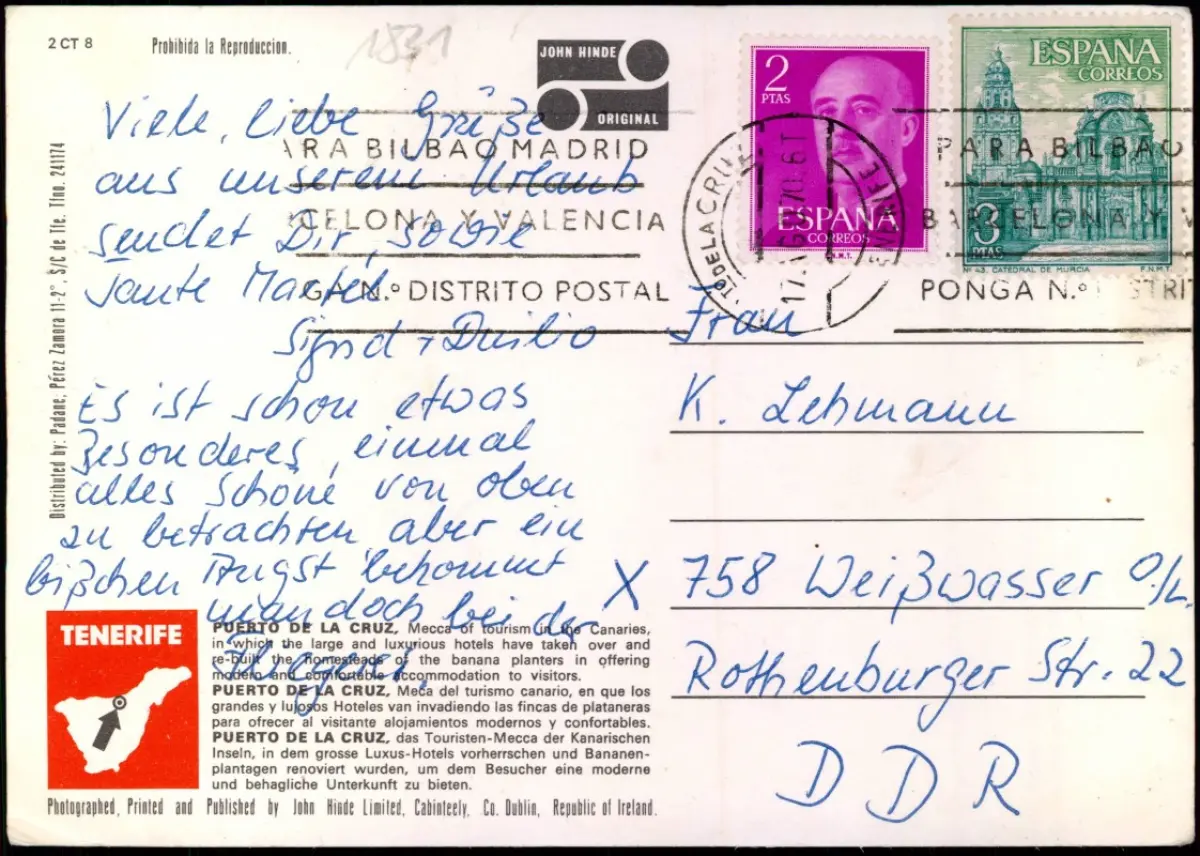 2 CT 8
Prohibida la Reproduccion.
1831
JOHN HINDE
ORIGINAL
2
PTAS
ESPAÑA
CORREOS
F.N.M.T.
ESPAÑA
CORREOS
3
PTAS
Nº 43. CATEDRAL DE MURCIA
F.N.M.T.
ARA BILBAO MADRID
CELONA Y VALENCIA
GA N.º DISTRITO POSTAL
PARA BILBAO
BARCELONA Y V
PONGA N.º
DE LA CRUZ
Viele, liebe Grüße
aus unserem Urlaub
sendet Dir, sowie
Tante Martel
Sigrid + Duilio
Es ist schon etwas
Besonderes, einmal
alles Schöne von oben
zu betrachten aber ein
bißchen Angst bekommt
man doch bei der
Fliegerei.
Frau
K. Lehmann
X 758 Weißwasser O/L.
Rothenburger Str. 22
DDR
Distributed by: Padane, Pérez Zamora 11-2°, S/C de Tfe. Tfno. 241174
TENERIFE
PUERTO DE LA CRUZ, Mecca of tourism in the Canaries,
in which the large and luxurious hotels have taken over and
re-built the homesteads of the banana planters in offering
modern and comfortable accommodation to visitors.
PUERTO DE LA CRUZ, Meca del turismo canario, en que los
grandes y lujosos Hoteles van invadiendo las fincas de plataneras
para ofrecer al visitante alojamientos modernos y confortables.
PUERTO DE LA CRUZ, das Touristen-Mecca der Kanarischen
Inseln, in dem grosse Luxus-Hotels vorherrschen und Bananen-
plantagen renoviert wurden, um dem Besucher eine moderne
und behagliche Unterkunft zu bieten.
Photographed, Printed and Published by John Hinde Limited, Cabinteely, Co. Dublin, Republic of Ireland.